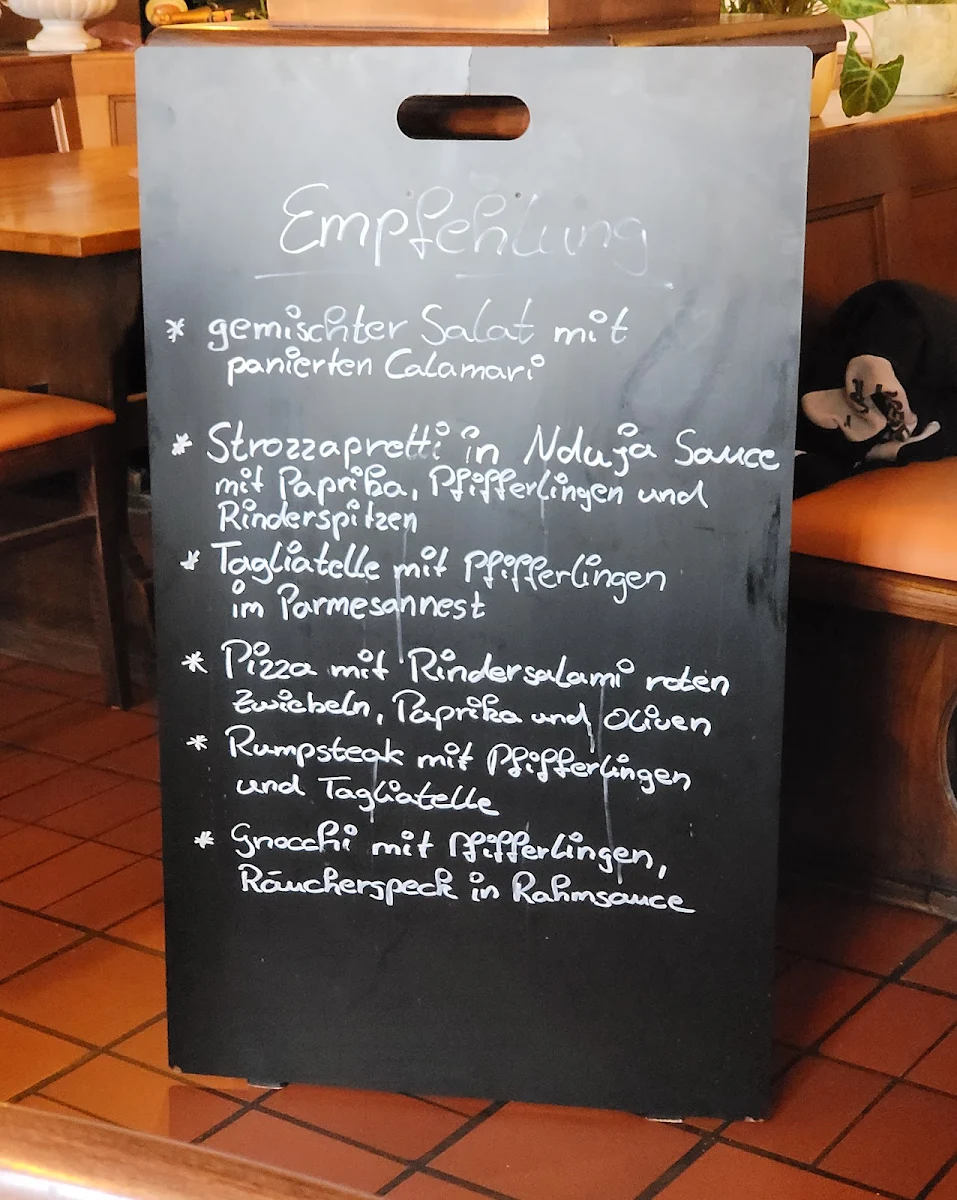 Empfehlung
* gemischter Salat mit
panierten Calamari
* Strozzapretti in Nduja Sauce
mit Paprika, Pfifferlingen und
Rinderspitzen
* Tagliatelle mit Pfifferlingen
im Parmesannest
* Pizza mit Rindersalami roten
Zwiebeln, Paprika und Oliven
* Rumpsteak mit Pfifferlingen
und Tagliatelle
* Gnocchi mit Pfifferlingen,
Räucherspeck in Rahmsauce